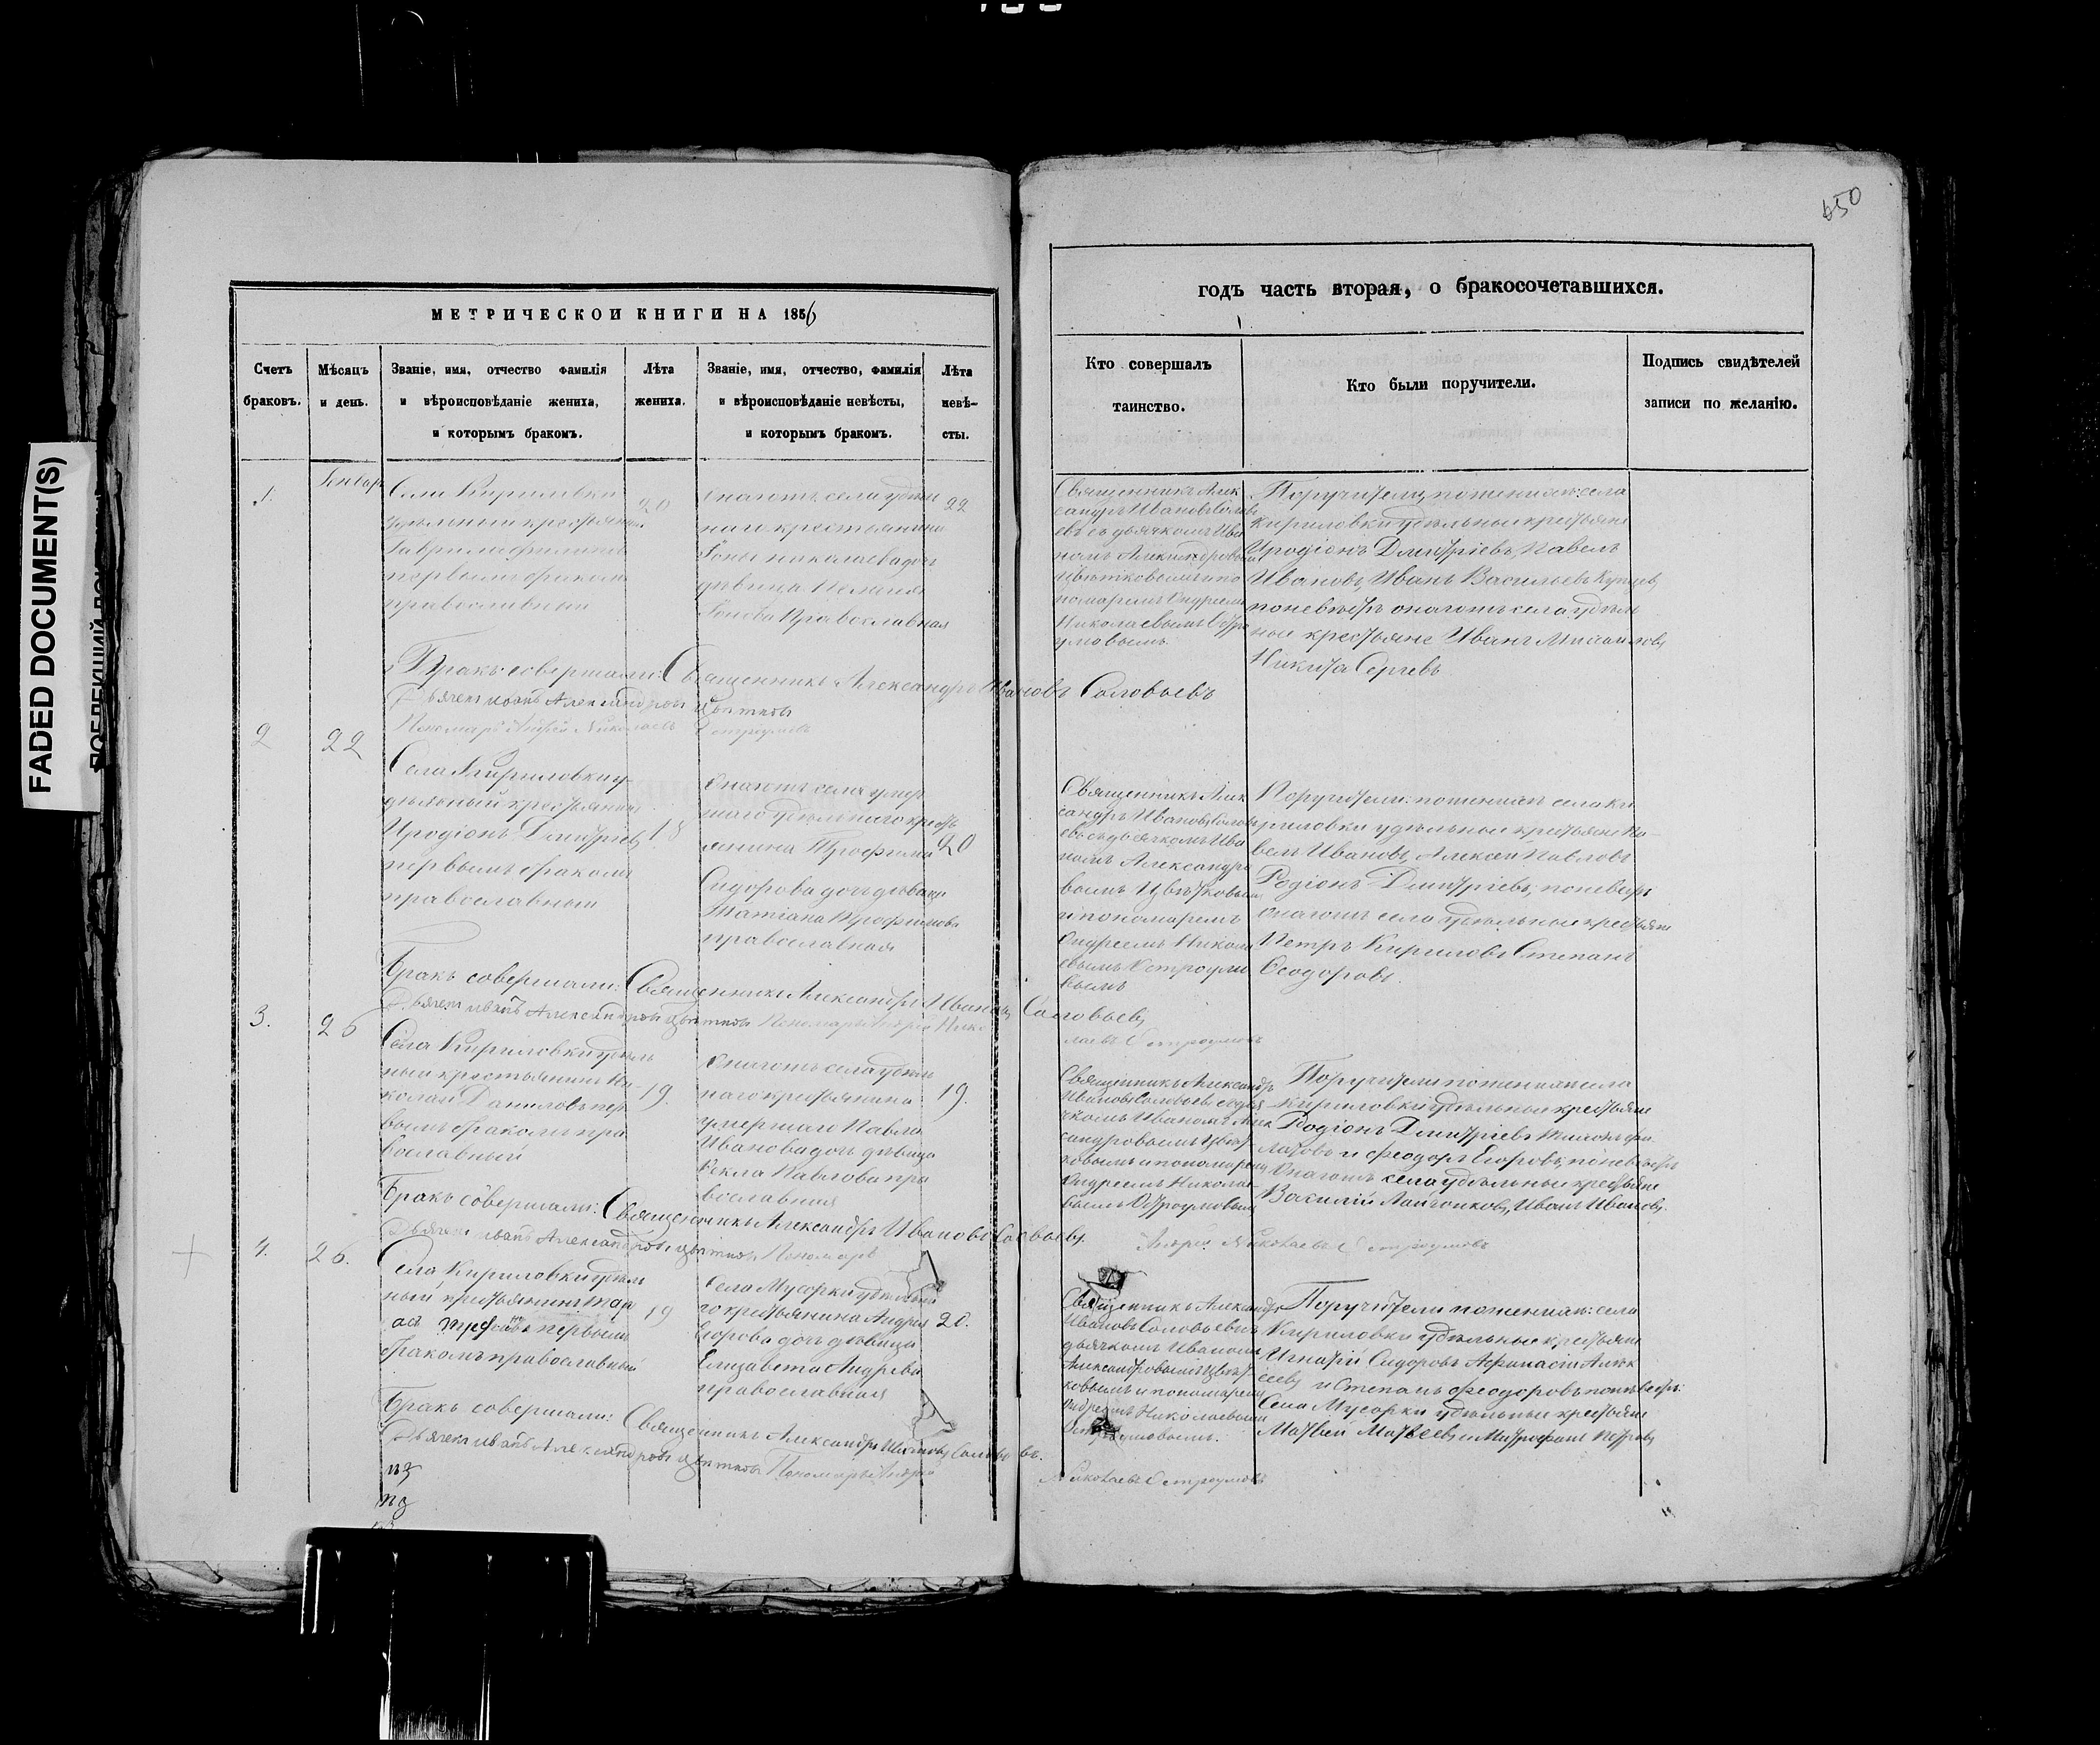 650
МЕТРИЧЕСКОЙ КНИГИ НА 1856
годъ часть вторая, о бракосочетавшихся.
Счетъ браковъ.
Мѣсяцъ и день.
Званіе, имя, отчество фамилія и вѣроисповѣданіе жениха, и которымъ бракомъ.
Лѣта жениха.
Званіе, имя, отчество, фамилія и вѣроисповѣданіе невѣсты, и которымъ бракомъ.
Лѣта невѣ-
сты.
Кто совершалъ таинство.
Кто были поручители.
Подпись свидѣтелей записи по желанію.
1.
Генвар
Села Кириловки
удѣльный крестьянинъ
Гаврила
первымъ бракомъ
православный
20
онагожъ села удѣль
наго крестьянина
николаева дочь
дѣвица
Православная
22
Священникъ Алек
сандръ Ивановъ Соловь
евъ съ дьячкомъ Ива
номъ Александровымъ
Цвѣтковымъ и по
номаремъ Андреемъ
Николаевымъ Остро
умовымъ
Поручители по женихѣ: села
Кириловки удѣльные крестьяне
Иродіонъ Дмитріевъ, Павелъ
Ивановъ, Иванъ Васильевъ
по невѣстѣ онагожъ села удѣль
ные крестьяне Иванъ
Никита Сергѣевъ
Бракъ совершали: Священникъ Александръ Ивановъ Соловьевъ
Дьячекъ иванъ Александровъ Цвѣтковъ
Пономарь Андрей Николаевъ Остроумовъ
2
22
Села Кириловки у-
дѣльный крестьянинъ
Иродіонъ Дмитріевъ
первымъ бракомъ
православный
18
Онагожъ села умер
шаго удѣльнаго кресть
янина Трофима
Сидорова дочь дѣвица
Татіана Трофимова
православная
20
Священникъ Алек
сандръ Ивановъ Соловь
евъ съ дьячкомъ Ива
номъ Александро
вымъ Цвѣтковымъ
и пономаремъ
Андреемъ Никола
евымъ Остроумо
вымъ
Поручители: по женихѣ села Ки
риловки удѣльные крестьяне Па-
велъ Ивановъ, Алексѣй Павловъ
Родіонъ Дмитріевъ; по невѣстѣ
онагожъ села удѣльные крестьяне
Петръ Кириловъ Степанъ
Ѳеодоровъ.
Бракъ совершали: Священникъ Александръ Ивановъ Соловьевъ
Дьячекъ иванъ Александровъ Цвѣтковъ Пономарь Андрей Нико
лаевъ Остроумовъ
3.
26
Села Кириловки удѣль
ный крестьянинъ Ни-
колай Даниловъ пер
вымъ бракомъ пра
вославный
19.
Онагожъ села удѣль
наго крестьянина
умершаго Павла
Иванова дочь дѣвица
Ѳекла Павлова пра
вославная
19.
Священникъ Александръ
Ивановъ Соловьевъ съ дья
чкомъ Иваномъ Алек
сандровымъ Цвѣт-
ковымъ и пономаремъ
Андреемъ Никола-
евымъ Остроумовымъ
Поручители по женихѣ села
Кириловки удѣльные крестьяне
Родіонъ Дмитріевъ
и Ѳеодоръ Егоровъ, по невѣстѣ
Онагожъ села удѣльные крестьяне
Василій Иванъ Ивановъ.
Бракъ совершали: Священникъ Александръ Ивановъ Соловьевъ.
Дьячекъ иванъ Александровъ Цвѣтковъ Пономарь
Андрей Николаевъ Остроумовъ
4.
26.
Села Кириловки удѣль
ный крестьянинъ Тар
ас первымъ
бракомъ православный
19
Села Мусорки удѣльна
го крестьянина Андрея
Егорова дочь дѣвица
Елизавета Андреева
православная
20.
Священникъ Александръ
Ивановъ Соловьевъ съ
дьячкомъ Иваномъ
Александровымъ Цвѣт-
ковымъ и пономаремъ
Андреемъ Николаевымъ
Остроумовымъ.
Поручители по женихѣ: села
Кириловки удѣльные крестьяне
Игнатій Сидоровъ Афанасій Алек
сѣевъ и Степанъ Ѳеодоровъ по невѣстѣ:
Села Мусорки удѣльные крестьяне
Матвей Матвеевъ и Митрофанъ Петровъ
Бракъ совершали: Священникъ Александръ Ивановъ Соловьевъ.
Дьячекъ иванъ Александровъ Цвѣтковъ Пономарь Андрей
Николаевъ Остроумовъ
FADED DOCUMENT(S)